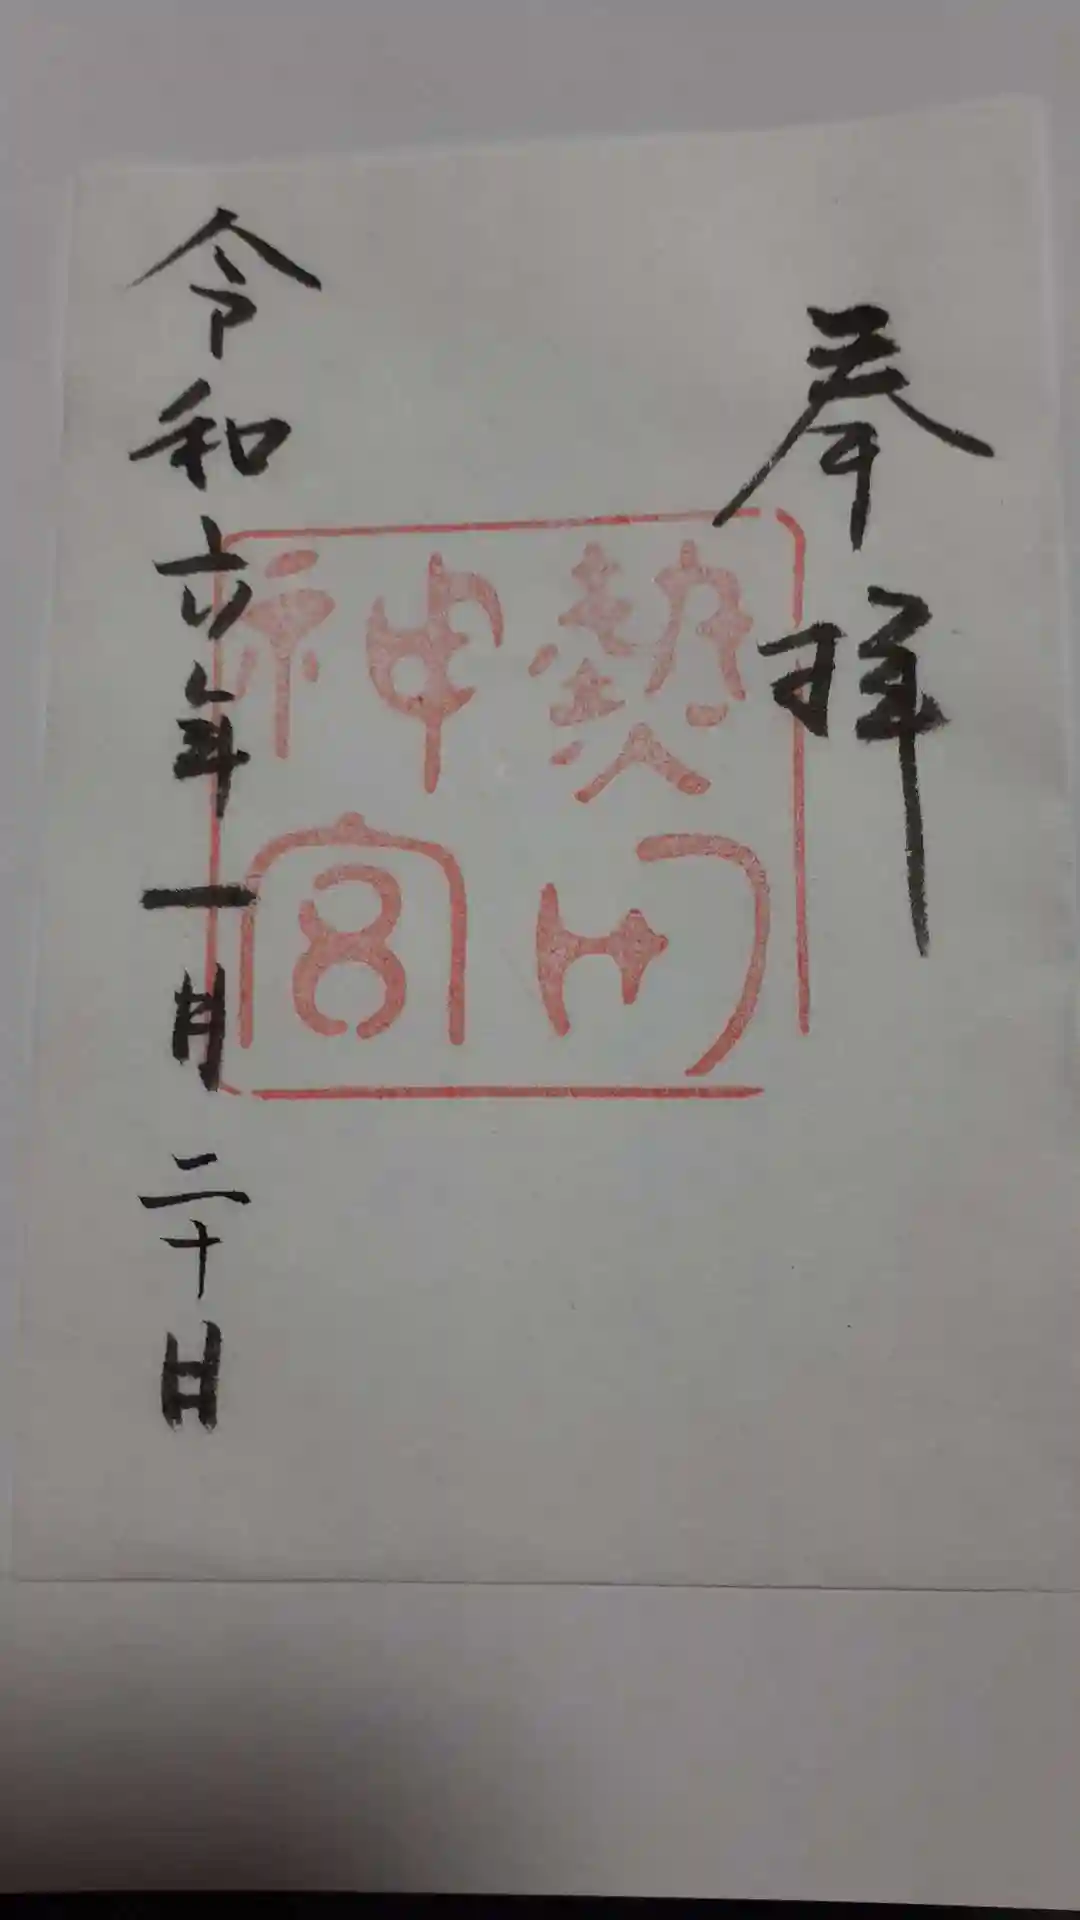 奉拝
熱田
神宮
令和六年一月二十日